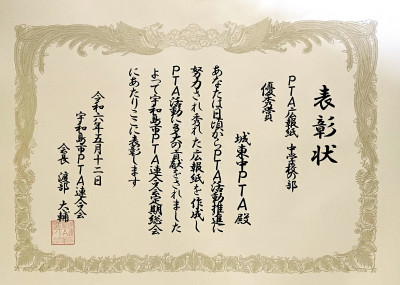 表彰状
PTA広報紙 中学校の部
優秀賞
城東中PTA 殿
あなたは日頃からPTA活動推進に
努力され秀れた広報紙を作成し
PTA活動に多大の貢献をされました
よって宇和島市PTA連合会定期総会
にあたりここに表彰します
令和六年五月十二日
宇和島市PTA連合会
会長 渡部 大輔